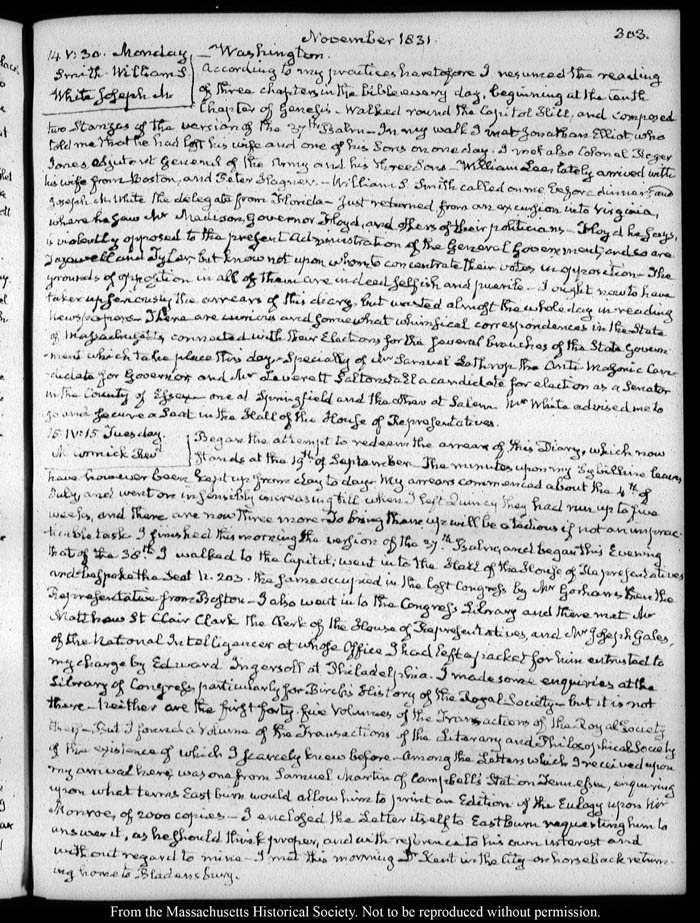 November 1831. 303.
14. V:30. Monday. Washington.
Smith. William S According to my practices heretofore I resumed the reading
White Joseph M of three chapters in the bible every day, beginning at the tenth
Chapter of Genesis. Walked round the Capitol Hill, and composed
two Stanzas of the version of the 37th Psalm. In my walk I met Jonathan Elliot who
told me that he had lost his wife and one of his Sons on one day. I met also Colonel Roger
Jones Adjutant General of the Army and his three Sons. William Lee, lately arrived with
his wife from Boston, and Peter Hagner. William S. Smith called on me before dinner, and
Joseph M. White the delegate from Florida. Just returned from an excursion into Virginia,
where he saw Mr Madison, Governor Floyd, and others of their politicians. Floyd he says,
is violently opposed to the present Administration of the General Government, and so are
Tazewell and Tyler, but know not upon whom to concentrate their votes in opposition. The
grounds of opposition in all of them are indeed selfish and puerile. I ought now to have
taken up seriously the arrears of this diary, but wasted almost the whole day in reading
Newspapers. There are curious and somewhat whimsical correspondences in the State
of Massachusetts, connected with their Elections for the several branches of the State Govern-
ment which take place this day. Specially of Mr Samuel Lathrop the Anti-Masonic Can-
didate for Governor, and Mr Leverett Saltonstall a candidate for election as a Senator
in the County of Essex one at Springfield and the other at Salem. Mr White advised me to
go and secure a Seat in the Hall of the House of Representatives.
15. IV:15. Tuesday. Began the attempt to redeem the arrears of this Diary, which now
McCormick Revd Stands at the 19th of September. The minutes upon my Sybilline leaves
have however been kept up from day to day. My arrears commenced about the 4th of
July, and went on insensibly increasing till when I left Quincy they had run up to five
weeks, and there are now three more. To bring them up will be a tedious if not an imprac-
ticable task. I finished this morning the version of the 37th Psalm, and began this Evening
that of the 38th. I walked to the Capitol; went in to the Hall of the House of Representatives
and bespoke the Seat N. 203. the same occupied in the last Congress by Mr Gorham, then the
Representative from Boston. I also went in to the Congress Library and there met Mr
Matthew St Clair Clark the Clerk of the House of Representatives, and Mr Joseph Gales,
of the National Intelligencer at whose Office I had left a packet for him entrusted to
my charge by Edward Ingersoll at Philadelphia. I made some enquiries at the
Library of Congress particularly for Birch's History of the Royal Society but it is not
there. Neither are the first forty five Volumes of the Transactions of the Royal Society
there. But I found a Volume of the Transactions of the Literary and Philosophical Society
of the existence of which I scarcely knew before. Among the Letters which I received upon
my arrival here, was one from Samuel Martin of Campbell's Station Tennessee, enquiring
upon what terms Eastburn would allow him to print an Edition of the Eulogy upon Mr
Monroe, of 2000 copies. I enclosed the Letter itself to Eastburn requesting him to
answer it, as he should think proper, and with reference to his own interest and
without regard to mine. I met this morning Dr Kent in the City on horseback return-
ing home to Bladensburg.
From the Massachusetts Historical Society. Not to be reproduced without permission.